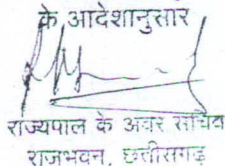 के आदेशानुसार
राज्यपाल के अवर सचिव
राजभवन, छत्तीसगढ़